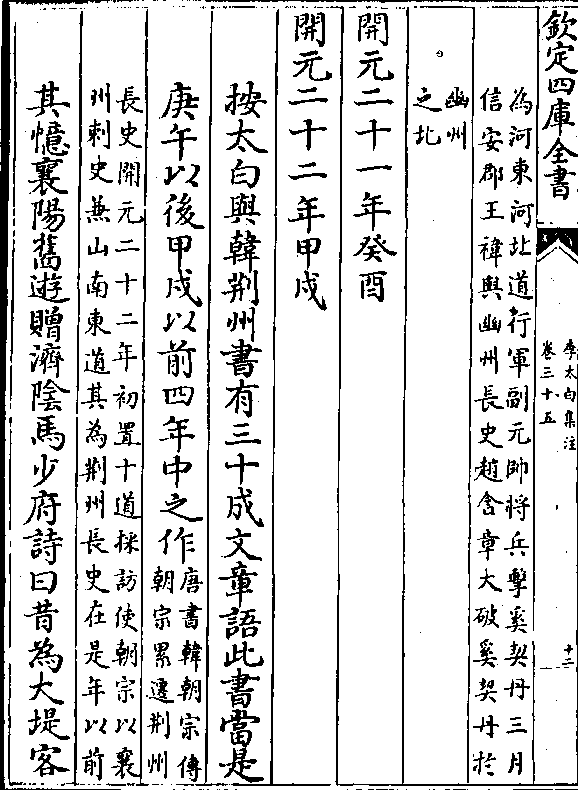 欽定四庫全書
李太白集注
卷三十五
十二
為河東河北道行軍副元帥將兵擊奚契丹三月
信安郡王禕與幽州長史趙含章大破奚契丹於
幽州
之北
開元二十一年癸酉
開元二十二年甲戌
按太白與韓荆州書有三十成文章語此書當是
庚午以後甲戌以前四年中之作
唐書韓朝宗傳
朝宗累遷荆州
長史開元二十二年初置十道採訪使朝宗以襄
州刺史兼山南東道其為荆州長史在是年以前
其憶襄陽舊遊贈濟隂馬少府詩曰昔為大堤客